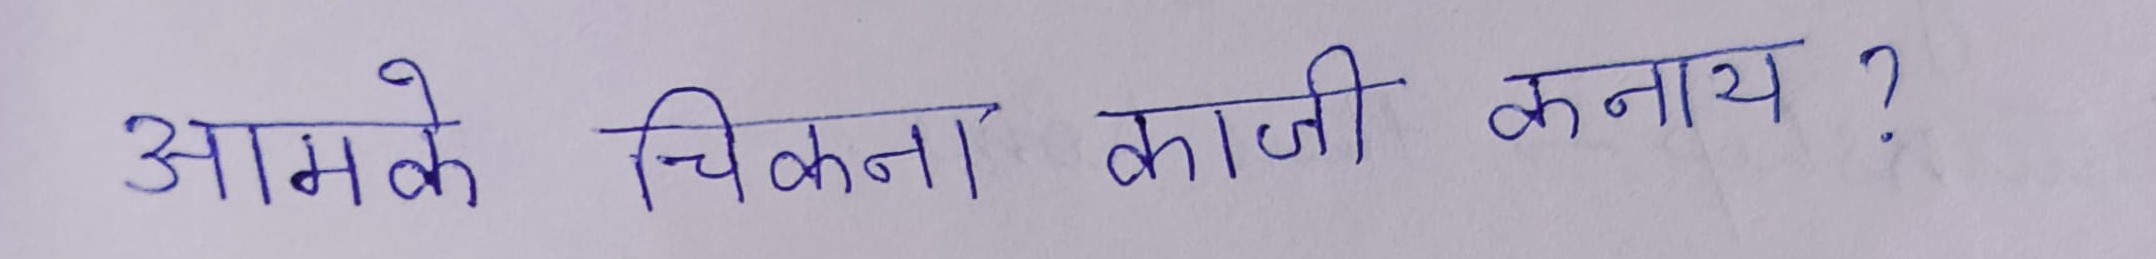 आमके चिकना काजी कनाय ?